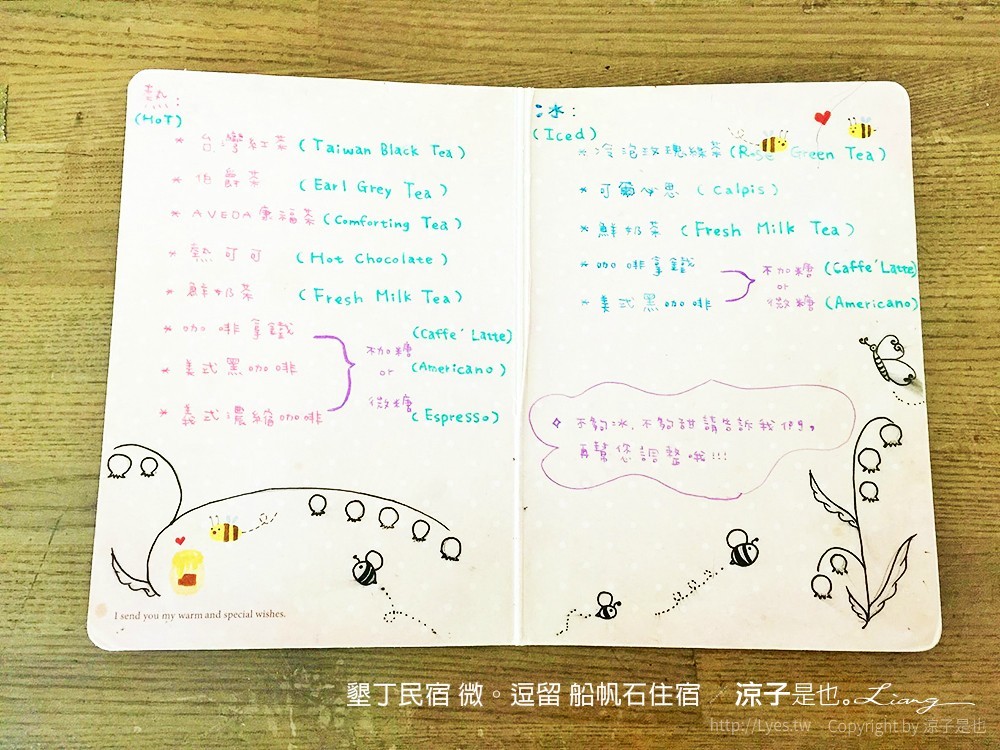 熱：
(HoT)
* 台灣紅茶 (Taiwan Black Tea)
* 伯爵茶 (Earl Grey Tea)
* AVEDA康福茶 (Comforting Tea)
* 熱可可 (Hot Chocolate)
* 鮮奶茶 (Fresh Milk Tea)
* 咖啡拿鐵 (Caffe' Latte)
不加糖
* 美式黑咖啡 or (Americano)
微糖
* 義式濃縮咖啡 (Espresso)
I send you my warm and special wishes.
冰：
(Iced)
* 冷泡玫瑰綠茶 (Rose Green Tea)
* 可爾必思 (Calpis)
* 鮮奶茶 (Fresh Milk Tea)
* 咖啡拿鐵 不加糖 (Caffe' Latte)
or
* 美式黑咖啡 微糖 (Americano)
✧ 不夠冰.不夠甜請告訴我們,
再幫您調整哦!!!
墾丁民宿 微。逗留 船帆石住宿 / 涼子是也。Liang
http://Lyes.tw Copyright by 涼子是也